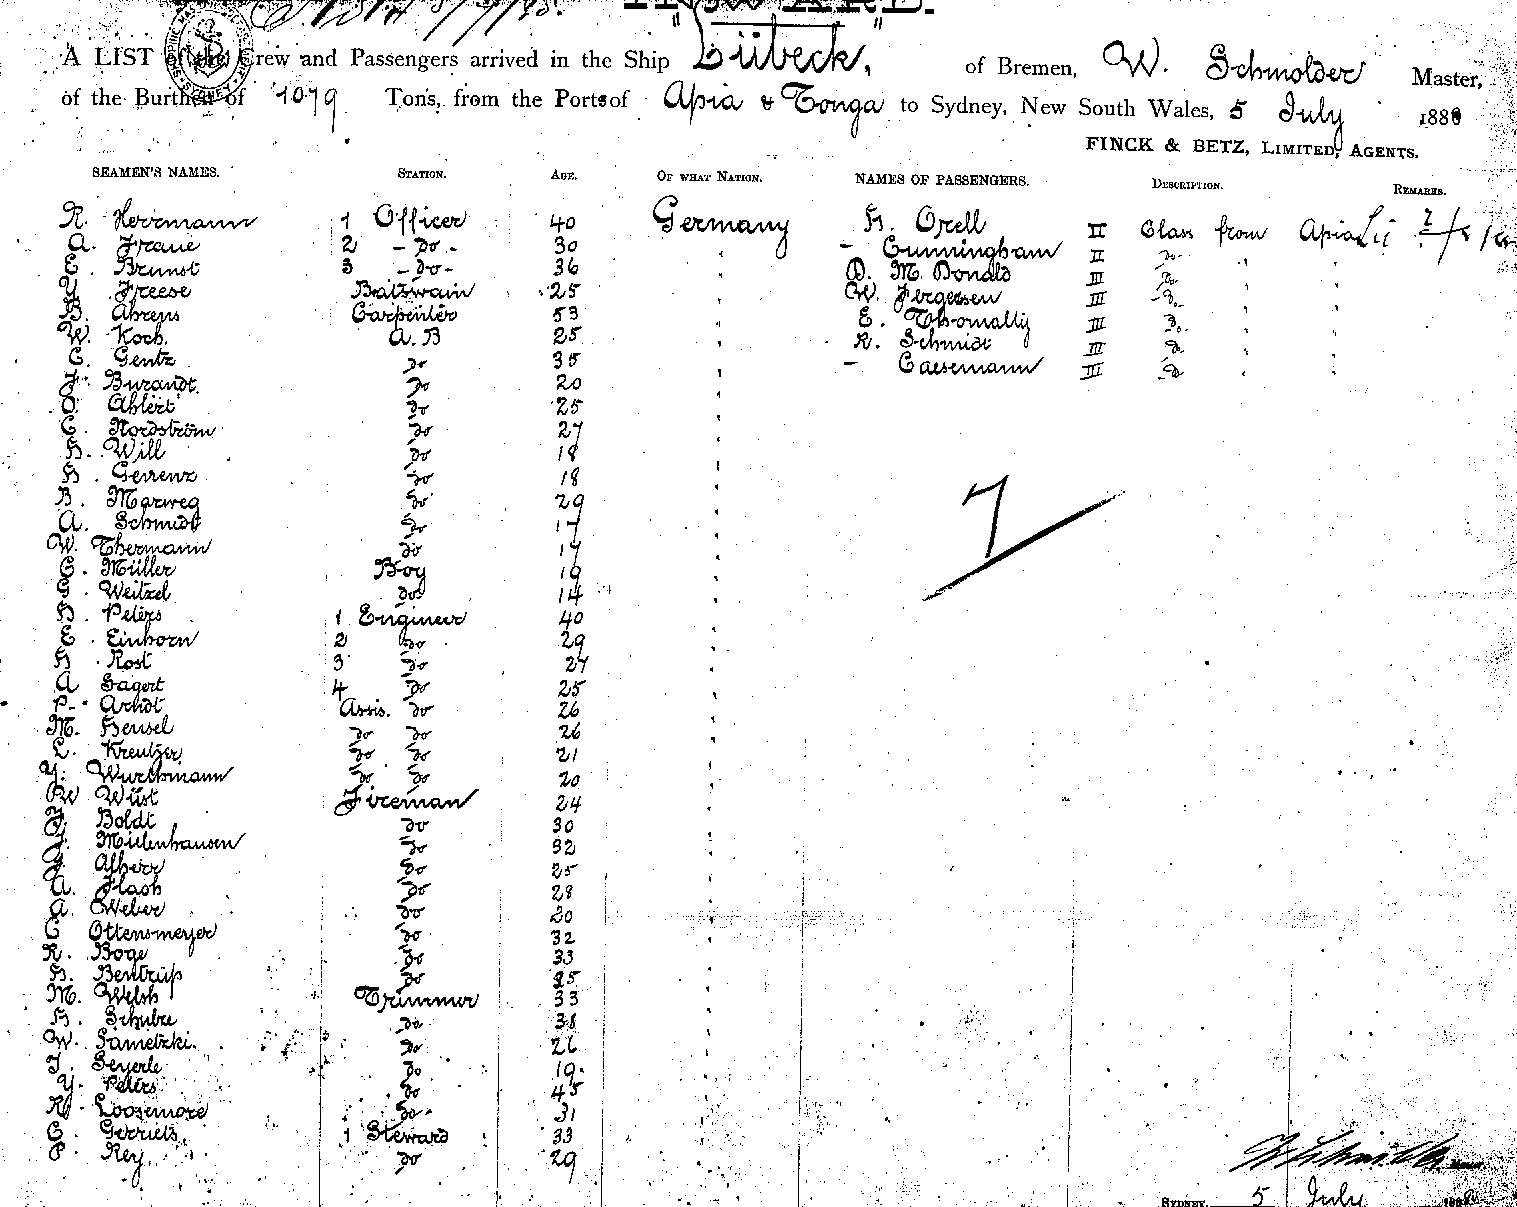 "Lübeck,"
A LIST of the Crew and Passengers arrived in the Ship of Bremen, W. Schmolder Master,
of the Burthen of 1079 Tons, from the Ports of Apia & Tonga to Sydney, New South Wales, 5 July 188
FINCK & BETZ, LIMITED, AGENTS.
SEAMEN'S NAMES. STATION. AGE. OF WHAT NATION. NAMES OF PASSENGERS. DESCRIPTION. REMARKS.
R. Herrmann 1 Officer 40 Germany H. Orell II Class from Apia
A. Fraue 2 - do - 30 - Cunningham II do
E. Brunst 3 - do - 36 D. Mc Donald III do
Y. Freese Batswain 25 W. Jergensen III do
B. Ahrens Carpenter 53 E. Thomally III do
W. Koch. A. B 25 R. Schmidt III do
C. Gentz do 35 - Caesemann III do
F. Burandt do 20
O. Ahlert do 25
C. Nordström do 27
H. Will do 18
H. Gerrenz do 18
B. Marweg do 29
A. Schmidt do 17
W. Thermann do 17
G. Müller Boy 19
G. Weitzel do 14
H. Peters 1 Engineer 40
E. Einhorn 2 do 29
H. Rost 3 do 27
A Sagert 4 do 25
P. Arndt Assis. do 26
M. Hensel do do 26
L. Kreutzer do do 21
Y. Wurthmann do do 20
W Wüst Fireman 24
F. Boldt do 30
J. Mielenhausen do 32
J. Alherr do 25
A. Flash do 28
A. Weber do 20
C Ottensmeyer do 32
R. Boge do 33
H. Bentrup do 25
M. Welsh Trimmer 33
H. Schulze do 38
W. Sametzki. do 26
J. Seyerle do 19
Y. Peters do 45
R. Loosemore do 31
C. Gerriets 1 Steward 33
P. Rey do 29
7
SYDNEY, 5 July 188